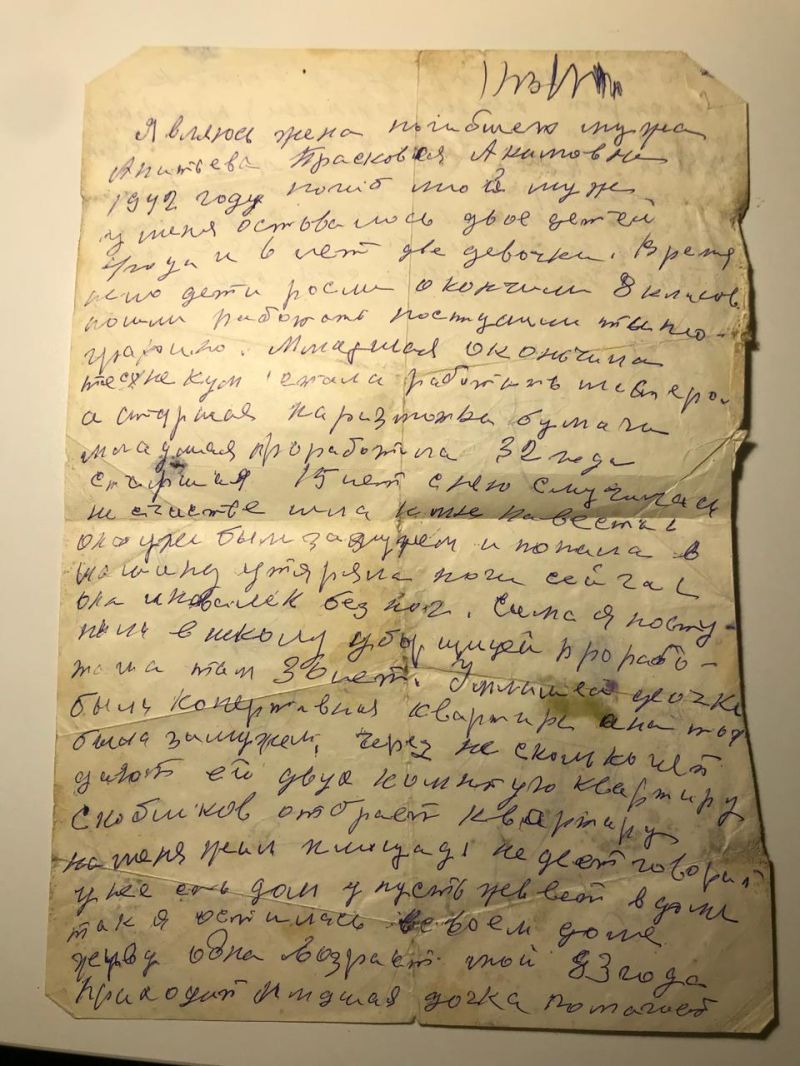 Являюсь жена погибшего мужа
Апитьева Прасковья Акимовна
1942 году погиб мой муж
у меня оствалось двое детей
4 года и 6 лет две девочки. Время
шло дети росли окончили 8 класов
пошли работать поступили типо-
графию. Младшая окончила
техникум стала работать мастером
а старшая на размотка бумаги
младшая проработала 32 года
старшая 15 лет с нею случилась
несчастье шла ко мне навестит
она уже был замужем и попала в
машину утяряла ноги сейчас
она инвалек без ног. Сама я посту-
пила в школу уборщицей прорабо-
тала там 36 лет. У младшей дочки
была коперативная квартира она тож
была замужем, через несколько лет
дают ей двух комнтую квартиру
Скобликов отбрает квартиру
на меня жил площадь не дает говорит
уже есь дом у пусть живет в доме
так я осталась в своем доме
живу одна Возраст мой 83 года
приходит младшая дочка помогает